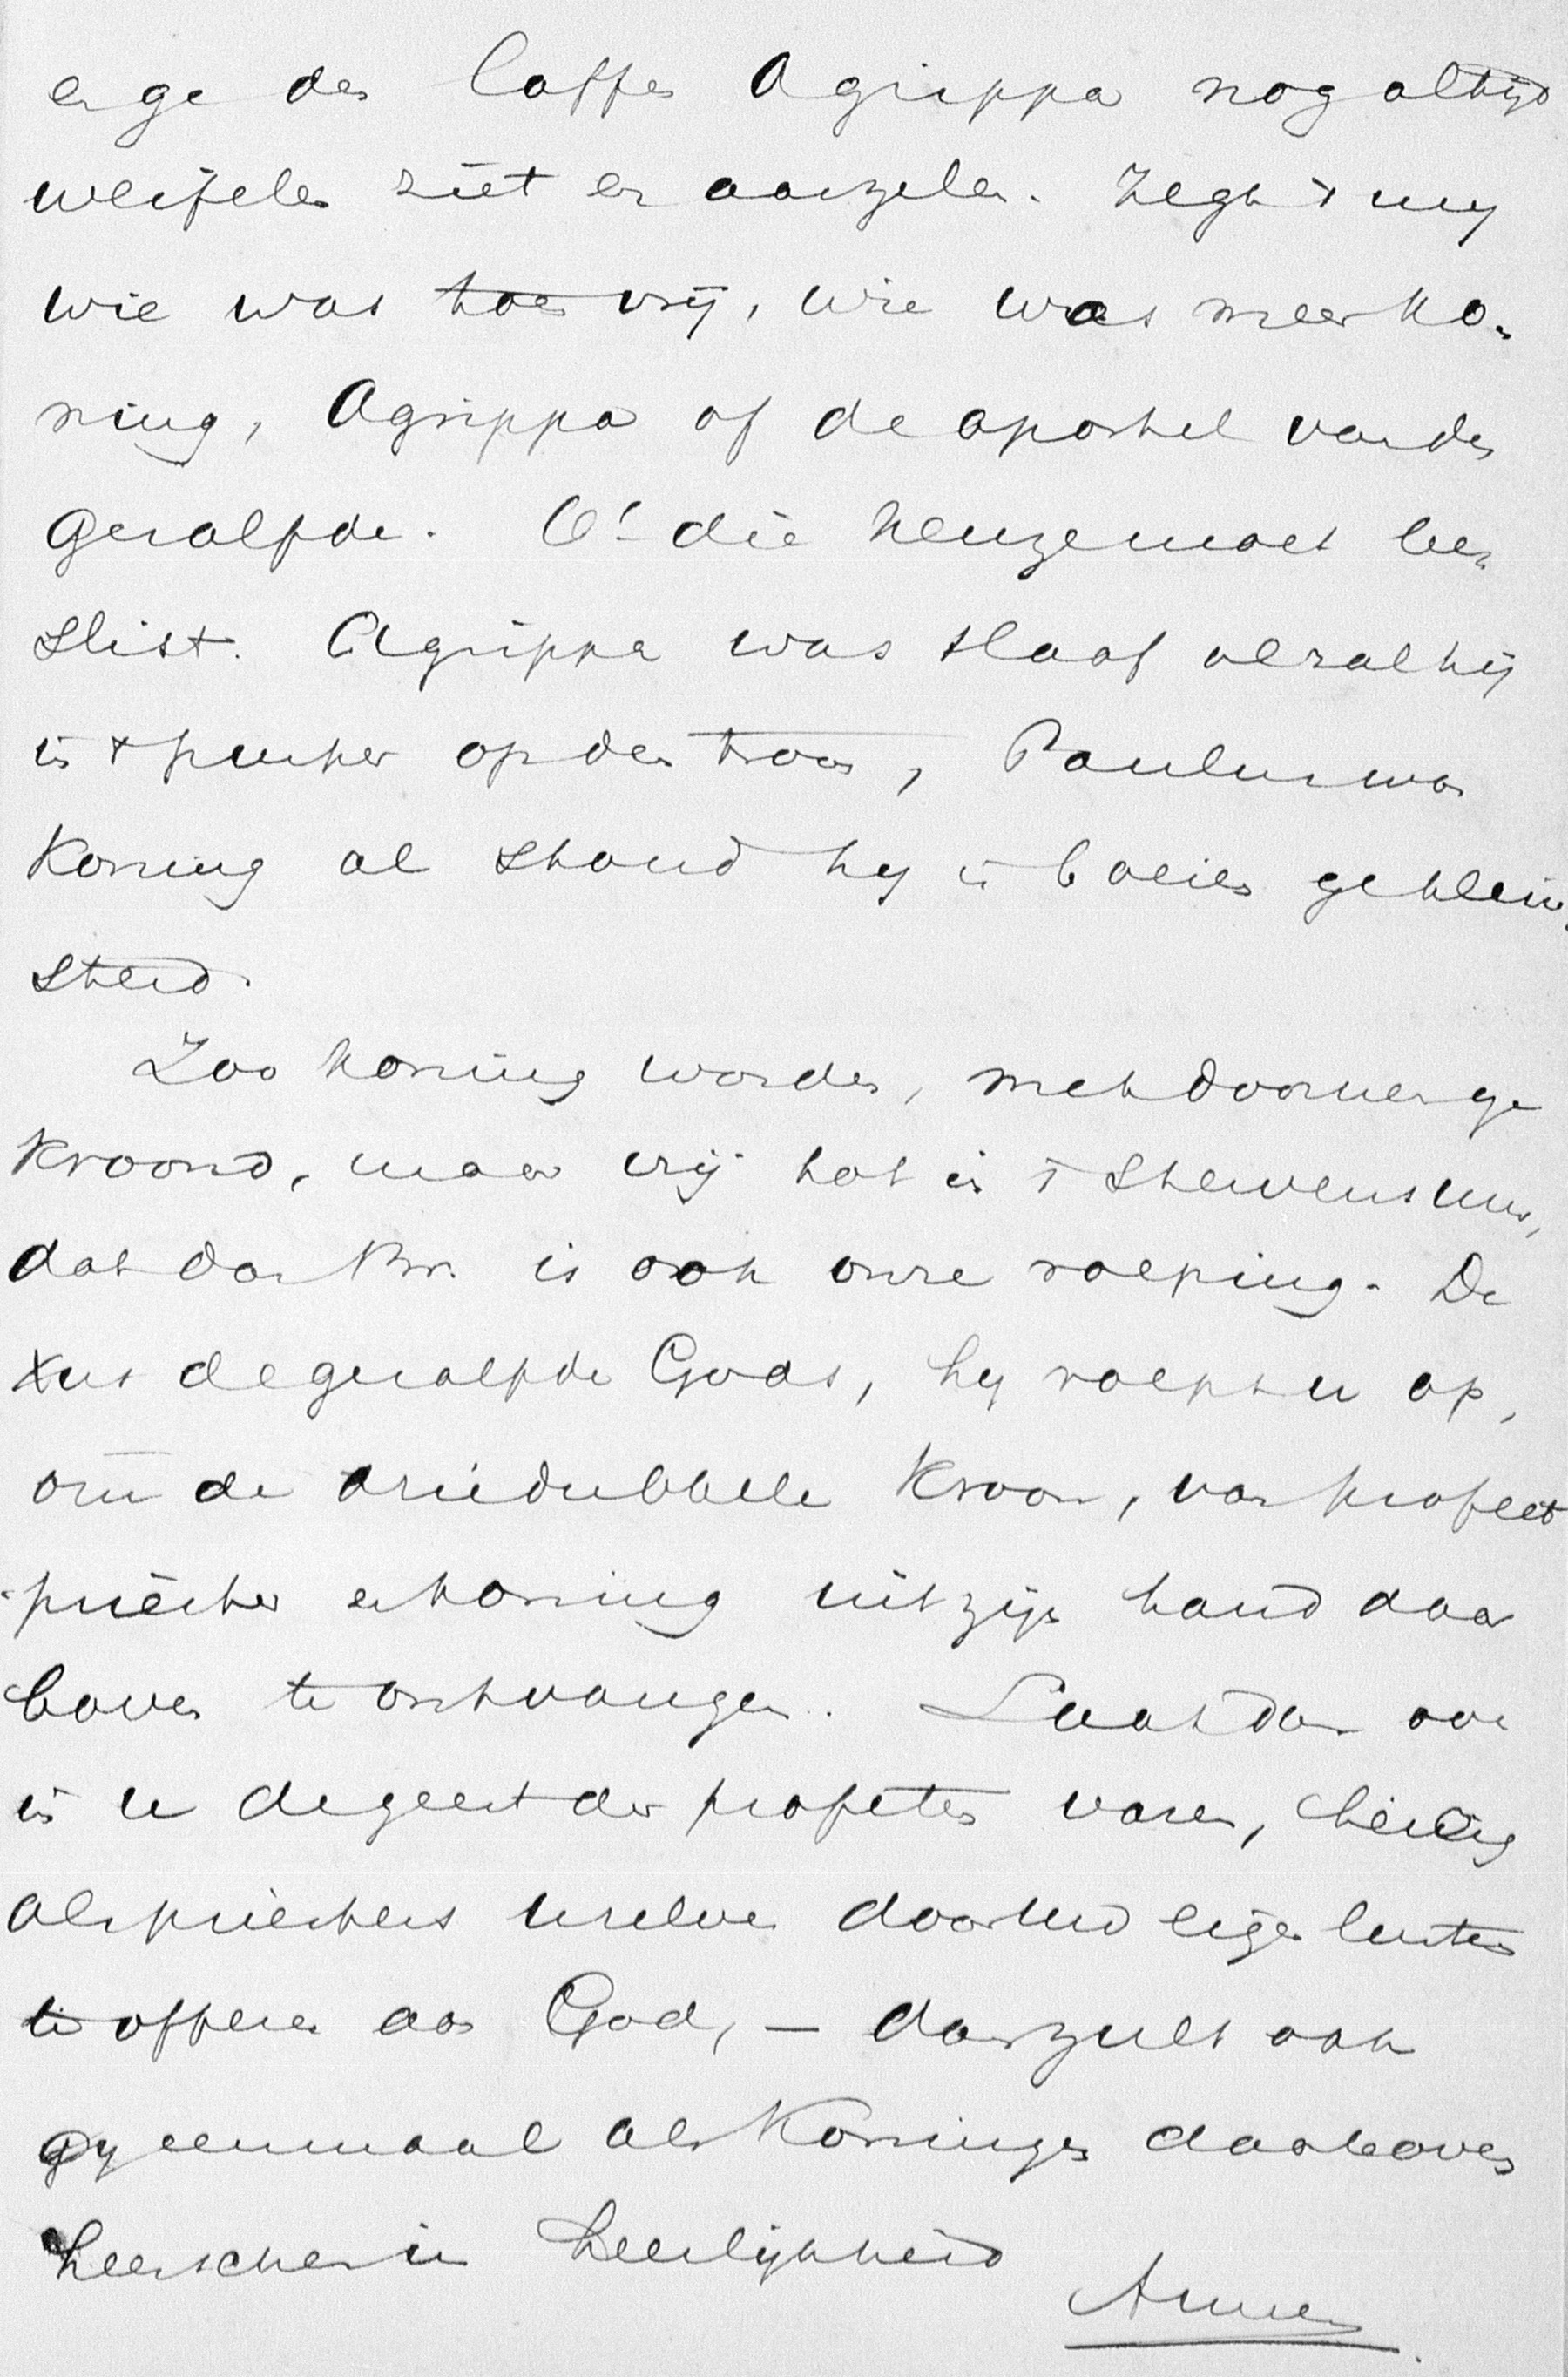 en ge den laffen Agrippa nog altijd
weifelen ziet en aarzelen. Zegt my
wie was toen vrij, wie was meer ko-
ning, Agrippa of de apostel van den
Gezalfde. O! die keuze moet be-
slist. Agrippa was slaaf al zat hij
in purper op den troon, Paulus was
Koning al stond hy in boeien gekluis-
sterd.
Zoo koning worden, met doornen ge
kroond, maar vrij tot in 't stervensuur,
dat dan Br. is ook onze roeping. De
Xus de gezalfde Gods, hy roept u op,
om de driedubbele Kroon, van profeet
priester en koning uit zijn hand daar
boven te ontvangen. Laat dan ook
in u de geest der profeten varen,
als priesters uzelve door uw eigen lusten
te offeren aan God, — dan zult ook
gy eenmaal als Koningen daarboven
heerschen in heerlijkheid
Amen